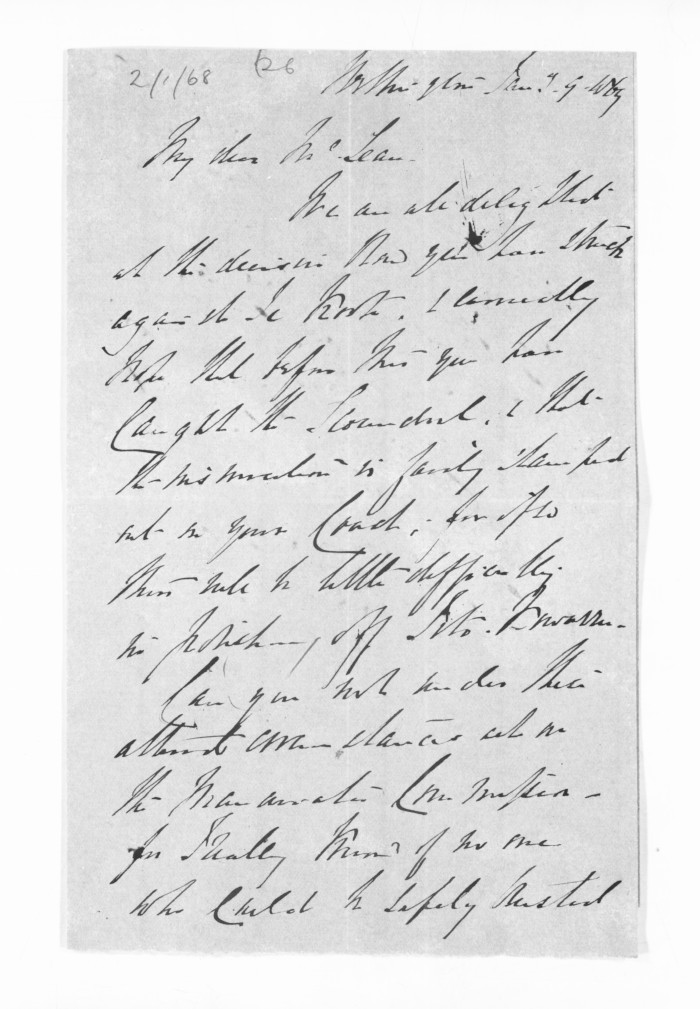 2/1/68 126
Wellington Jany. 9. 1869
My dear McLean.
We are all delighted
at the decisive blow you have struck
against Te Kooti, & earnestly
hope that before this you have
Caught the Scoundrel, & that
the insurrection is fairly stamped
out on your Coast; for if so
there will be little difficulty
in polishing off Tito Kowaru.
Can you not under these
altered circumstances act on
the Manawatu Commission -
for I really know of no one
who could be safely trusted